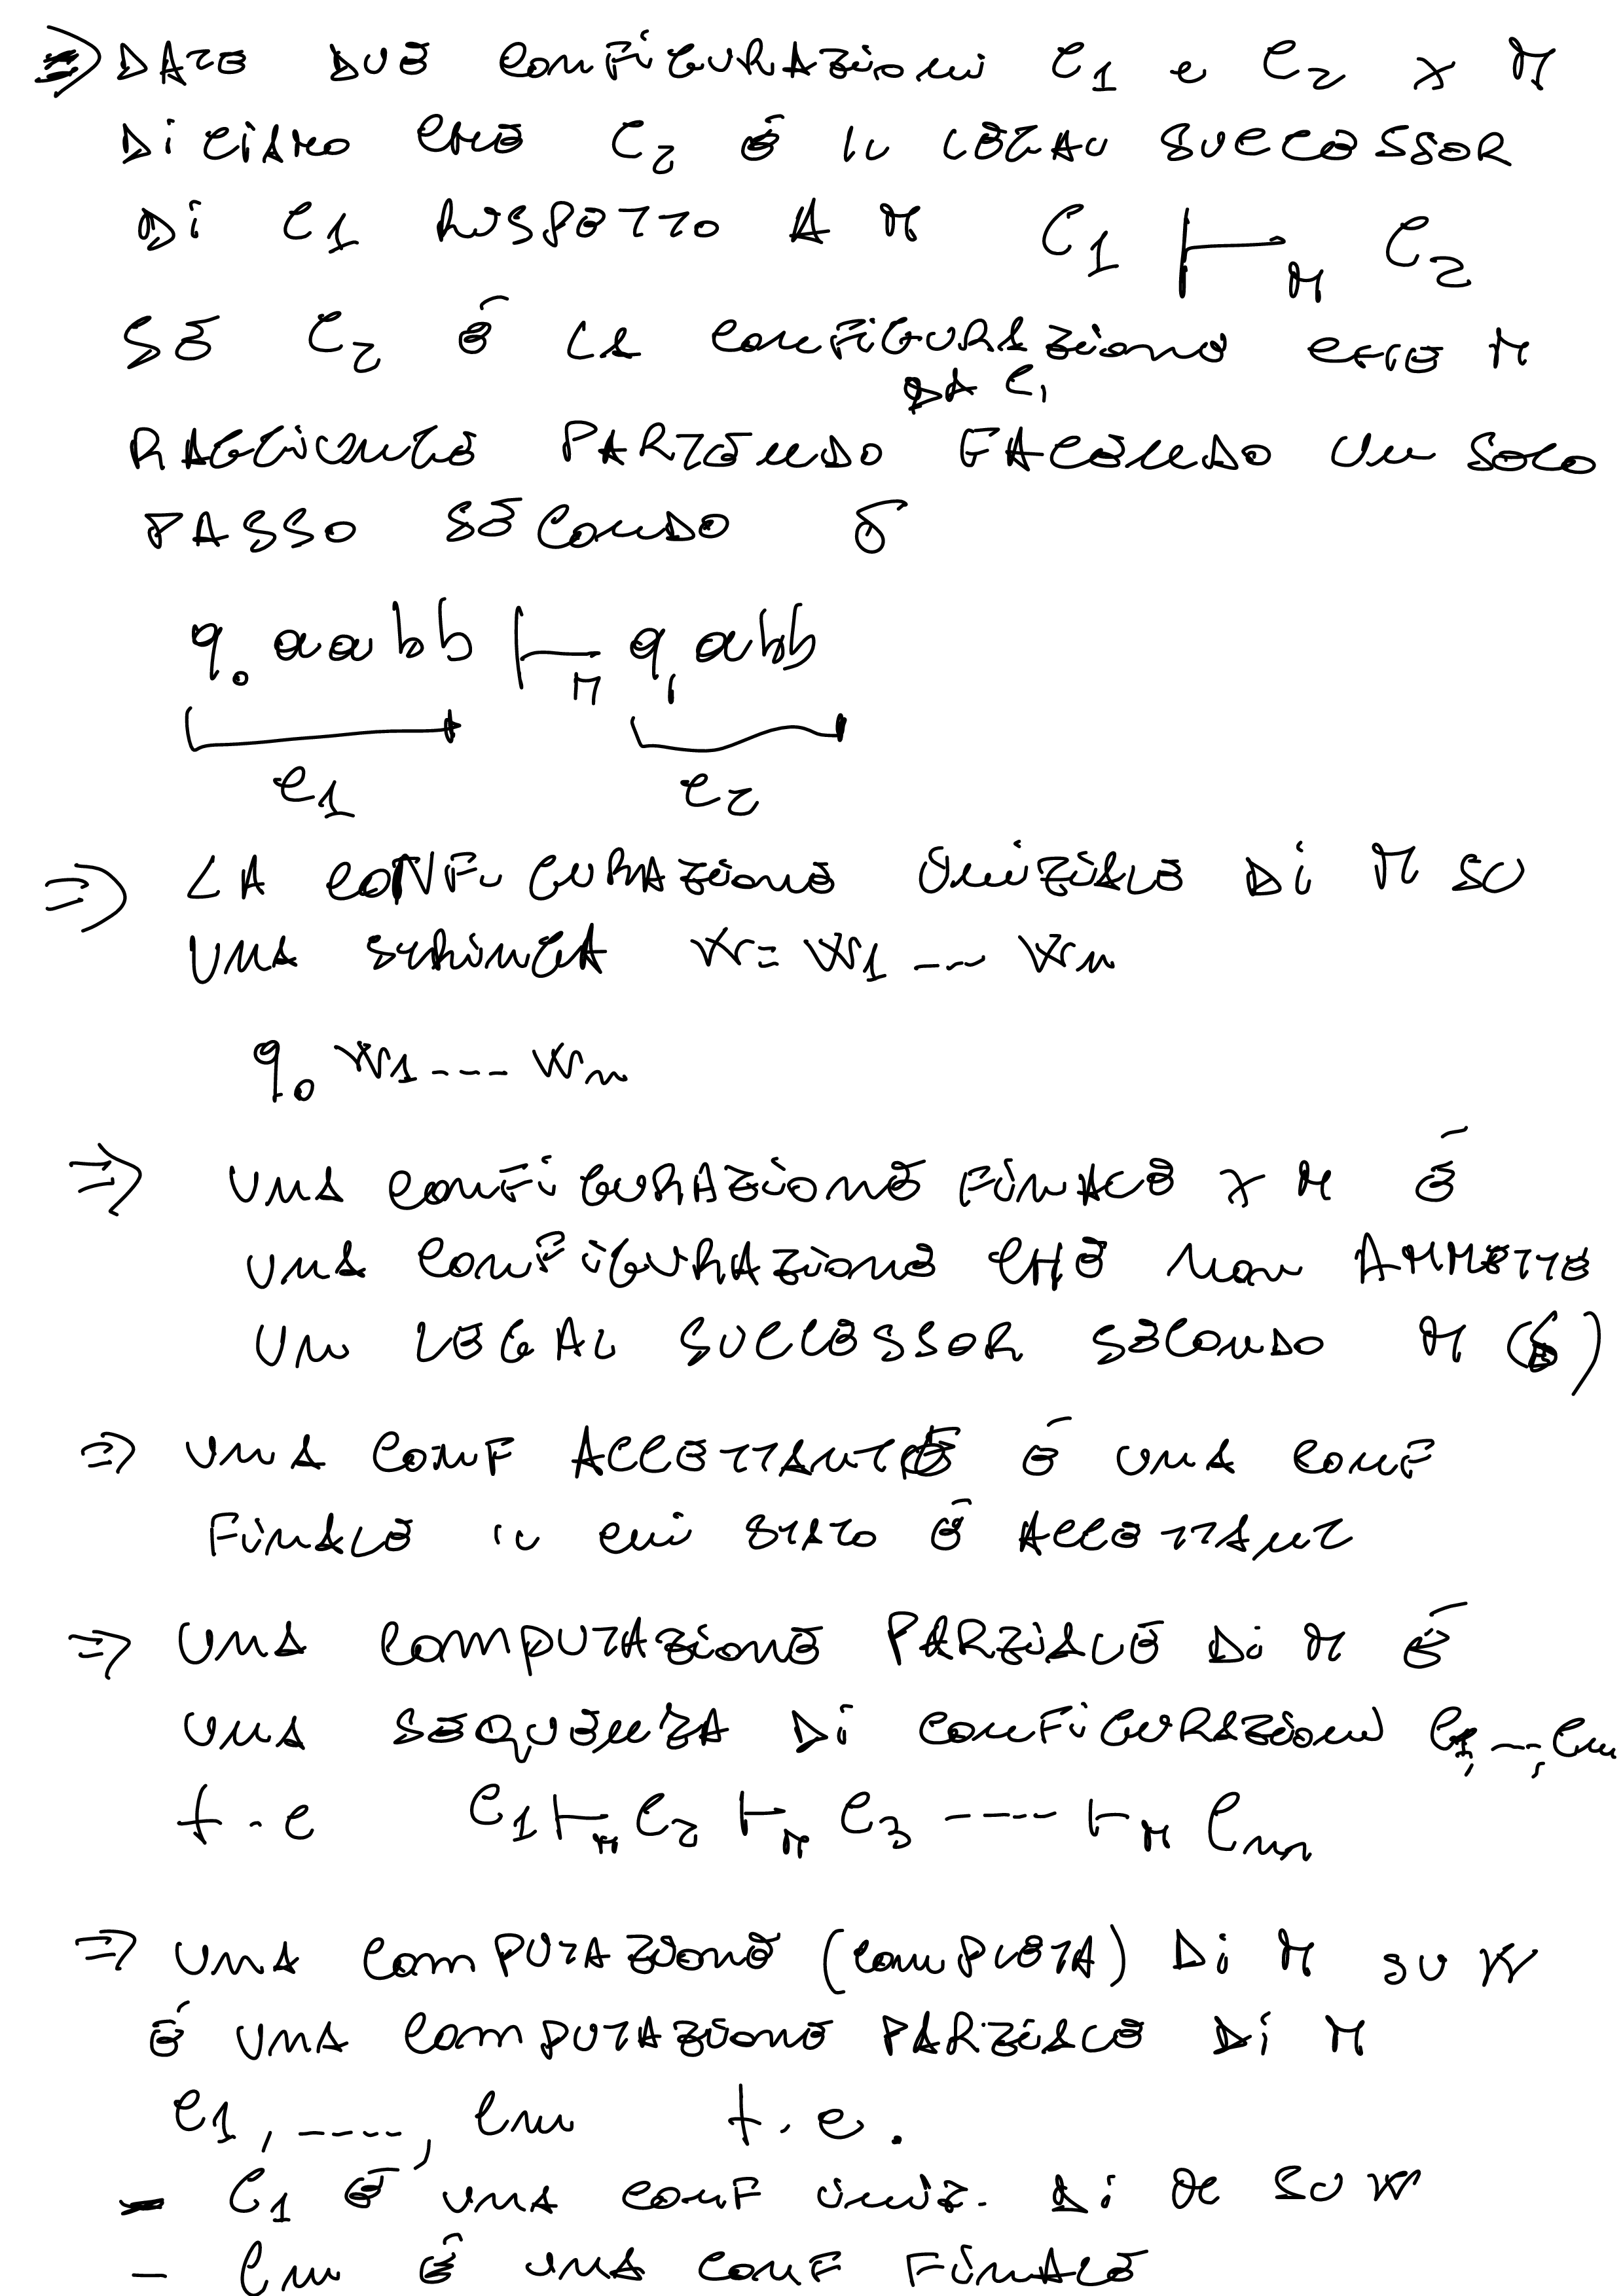 ⇒ DATE DUE CONFIGURAZIONI C1 e C2 x M
DICIAMO CHE C2 È IL LEGAL SUCCESSOR
DI C1 RISPETTO A M C1 ⊢M C2
SE C2 È LA CONFIGURAZIONE CHE M
DA C1
RAGGIUNGE PARTENDO FACENDO UN SOLO
PASSO SECONDO δ
q0 aabb ⊢M q1 abb
C1 C2
⇒ LA CONFIGURAZIONE INIZIALE DI M SU
UNA STRINGA W = W1 ---- Wn
q0 W1 ---- Wn
⇒ UNA CONFIGURAZIONE FINALE x M È
UNA CONFIGURAZIONE CHE NON AMMETTE
UN LEGAL SUCCESSOR SECONDO M (δ)
⇒ UNA CONF ACCETTANTE È UNA CONF
FINALE IL CUI STATO È ACCETTANTE
⇒ UNA COMPUTAZIONE PARZIALE DI M È
UNA SEQUENZA DI CONFIGURAZIONI C1, ---, Cm
t.c C1 ⊢M C2 ⊢M C3 ----- ⊢M Cm
⇒ UNA COMPUTAZIONE (COMPLETA) DI M SU W
È UNA COMPUTAZIONE PARZIALE DI M
C1, -----, Cm t.c.
- C1 È UNA CONF INIZ. DI M SU W
- Cm È UNA CONF FINALE